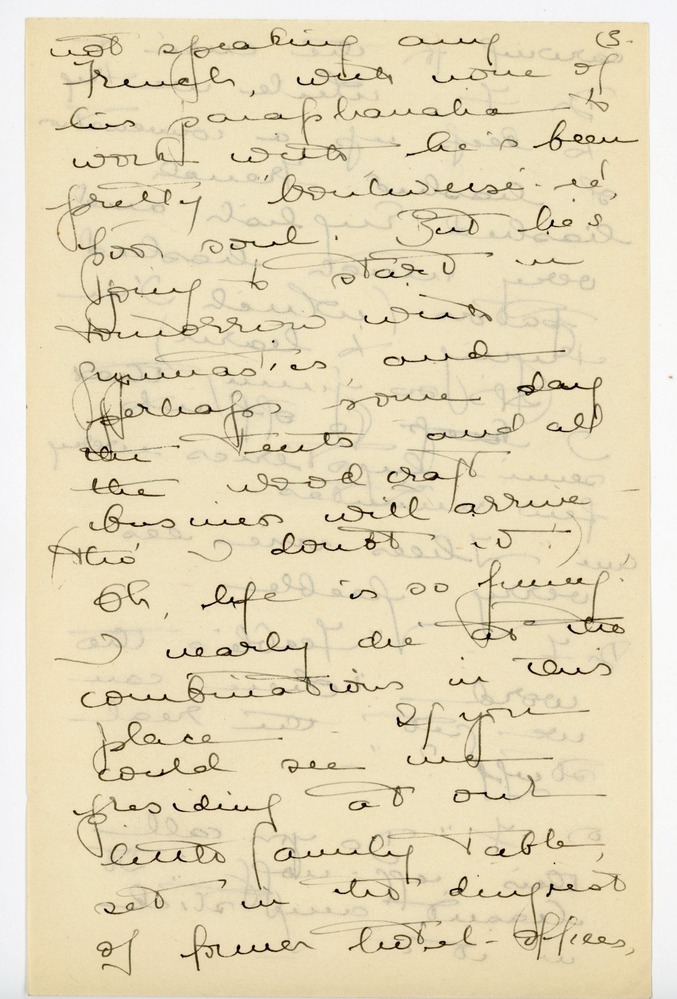 (3.
not speaking any
French, with none of
his paraphanalia to
work with he's been
pretty bouleversé-ed,
poor soul. But he's
going to start in
tomorrow with
gymnastics, and
perhaps some day
the tents and all
the wood craft
business will arrive -
(tho' I doubt it!)
Oh, life is so funny!
I nearly die at the
combinations in this
place - If you
could see me
presiding at our
little family table,
set in the dingiest
of former hotel-offices,